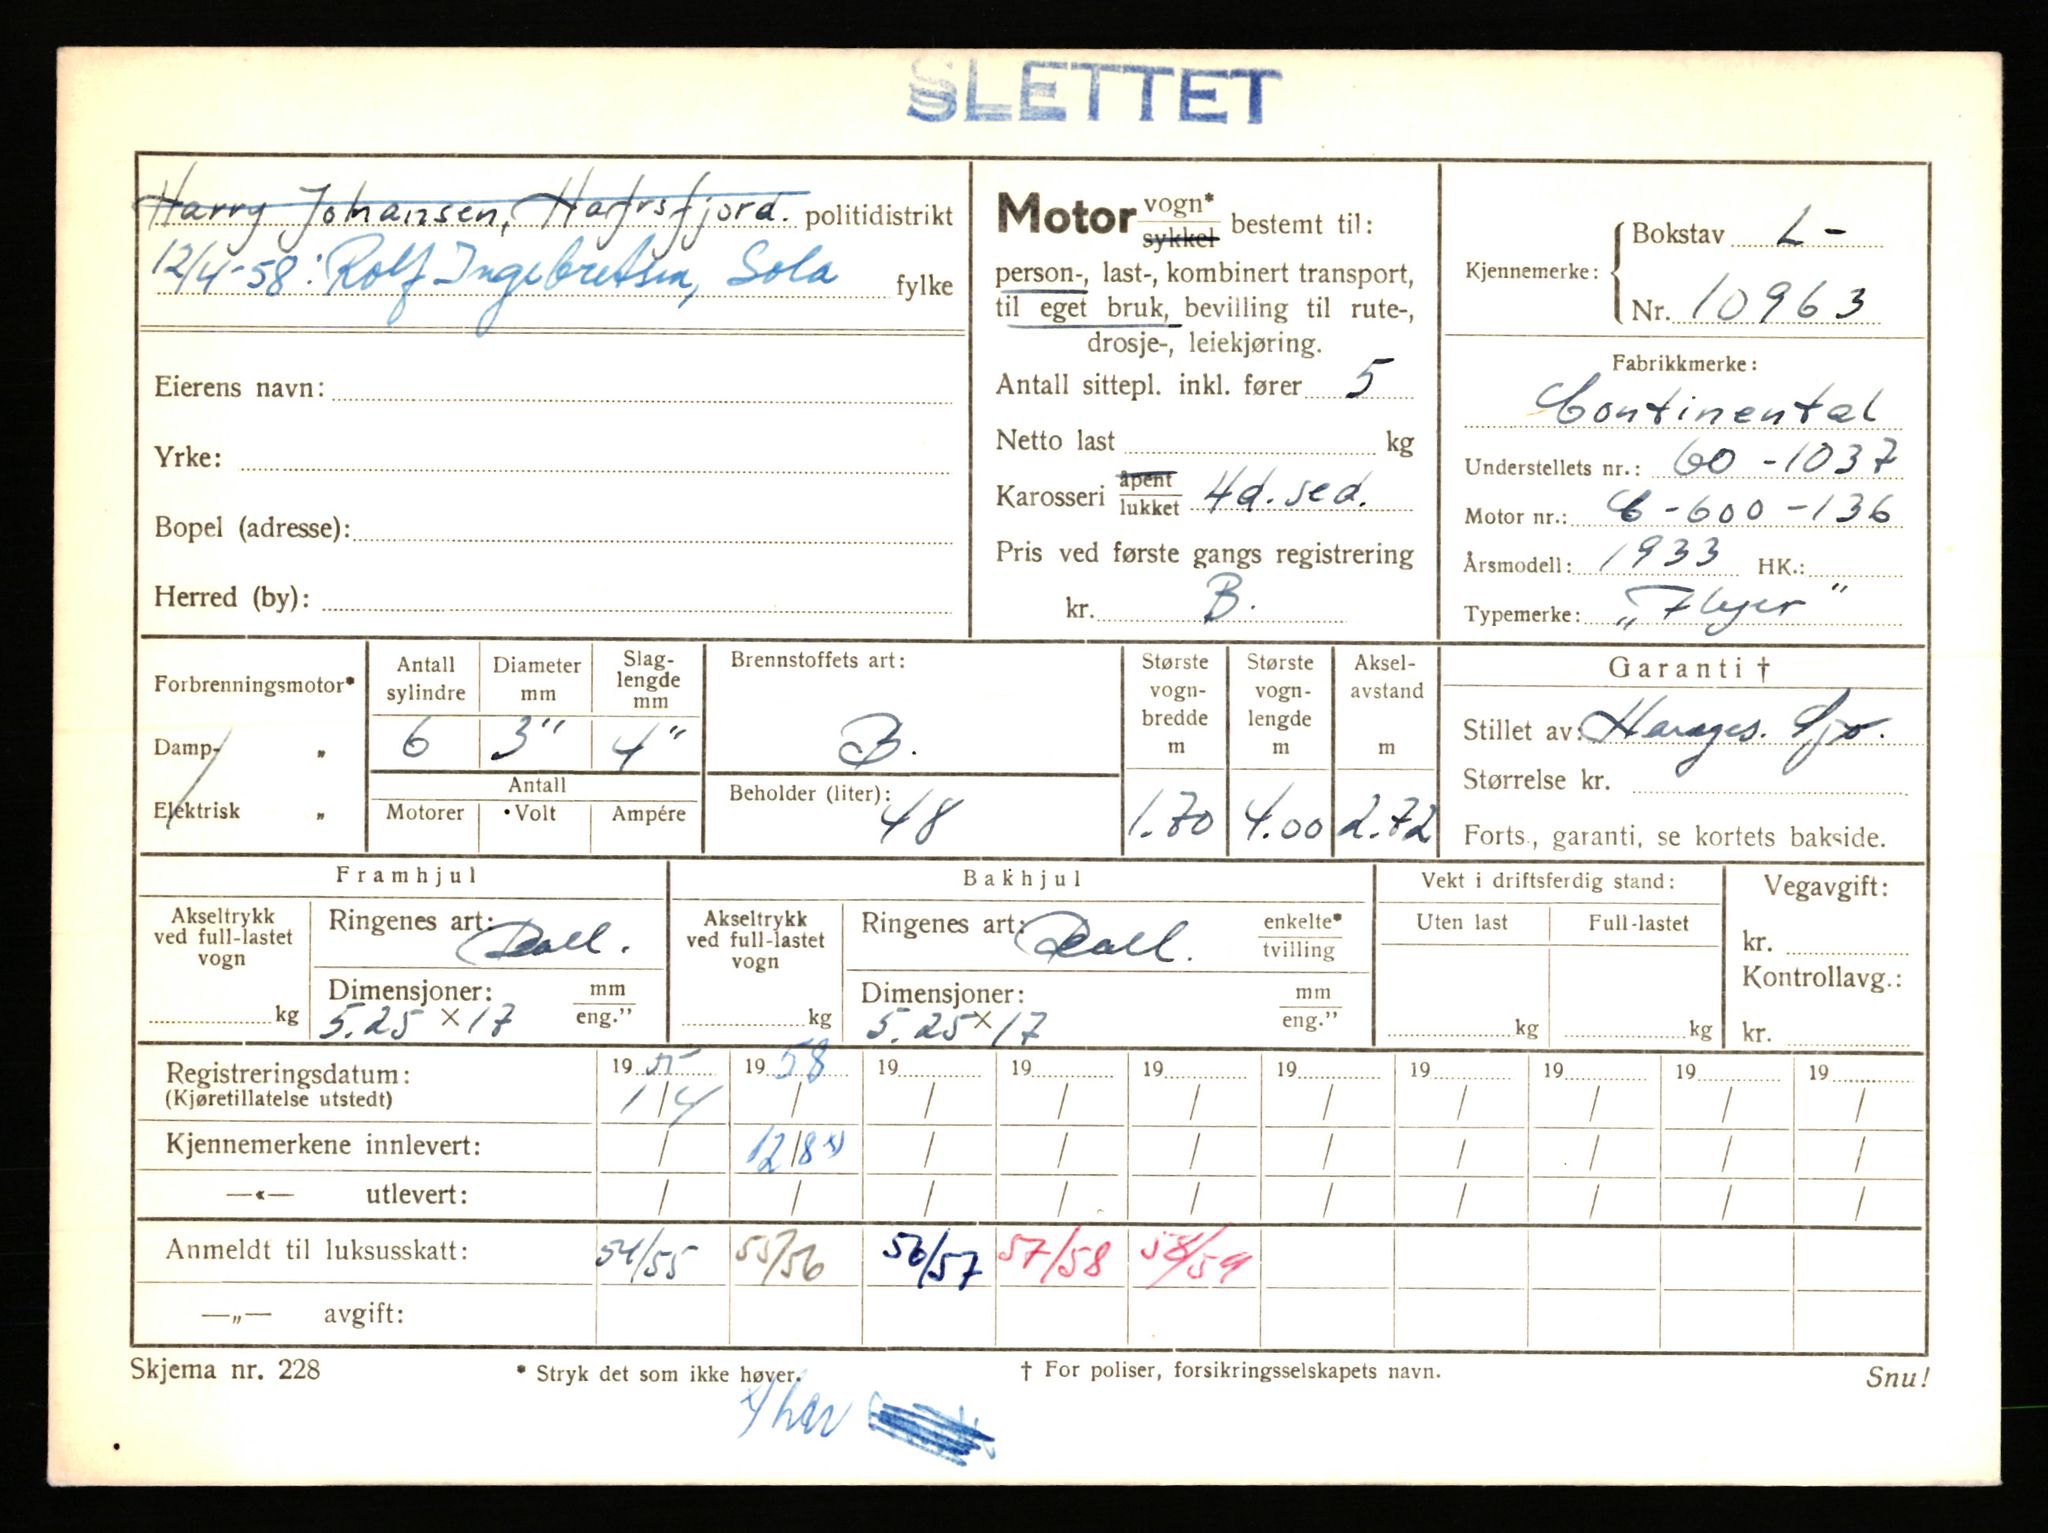 SLETTET
Harry Johansen, Hafrsfjord. politidistrikt
12/4-58: Rolf Ingebretsen, Sola fylke
Eierens navn:
Yrke:
Bopel (adresse):
Herred (by):
Motor vogn* sykkel bestemt til:
person-, last-, kombinert transport,
til eget bruk, bevilling til rute-,
drosje-, leiekjøring.
Antall sittepl. inkl. fører 5
Netto last kg
Karosseri åpent lukket 4d. sed.
Pris ved første gangs registrering
kr. B.
Kjennemerke: Bokstav L-
Nr. 10963
Fabrikkmerke:
Continental
Understellets nr.: 60-1037
Motor nr.: C-600-136
Årsmodell: 1933 HK.:
Typemerke: „Flyer"
Forbrenningsmotor*
Damp- „
Elektrisk „
Antall sylindre
6
Diameter mm
3"
Slag- lengde mm
4"
Antall
Motorer Volt Ampére
Brennstoffets art:
B.
Beholder (liter):
48
Største vogn- bredde m
1.70
Største vogn- lengde m
4.00
Aksel- avstand m
2.72
Garanti †
Stillet av:
Størrelse kr.
Forts., garanti, se kortets bakside.
Framhjul
Akseltrykk ved full-lastet vogn
kg
Ringenes art:
Dimensjoner: mm eng."
5.25 × 17
Bakhjul
Akseltrykk ved full-lastet vogn
kg
Ringenes art: enkelte* tvilling
Dimensjoner: mm eng."
5.25 × 17
Vekt i driftsferdig stand:
Uten last Full-lastet
kg kg
Vegavgift:
kr.
Kontrollavg.:
kr.
Registreringsdatum: 1955 1958 19 19 19 19 19 19 19 19
(Kjøretillatelse utstedt) 1/4 / / / / / / / / /
Kjennemerkene innlevert: / 12/8 x) / / / / / / / /
—«— utlevert: / / / / / / / / / /
Anmeldt til luksusskatt: 54/55 55/56 56/57 57/58 58/59
—„— avgift:
Skjema nr. 228 * Stryk det som ikke høver. † For poliser, forsikringsselskapets navn. Snu!